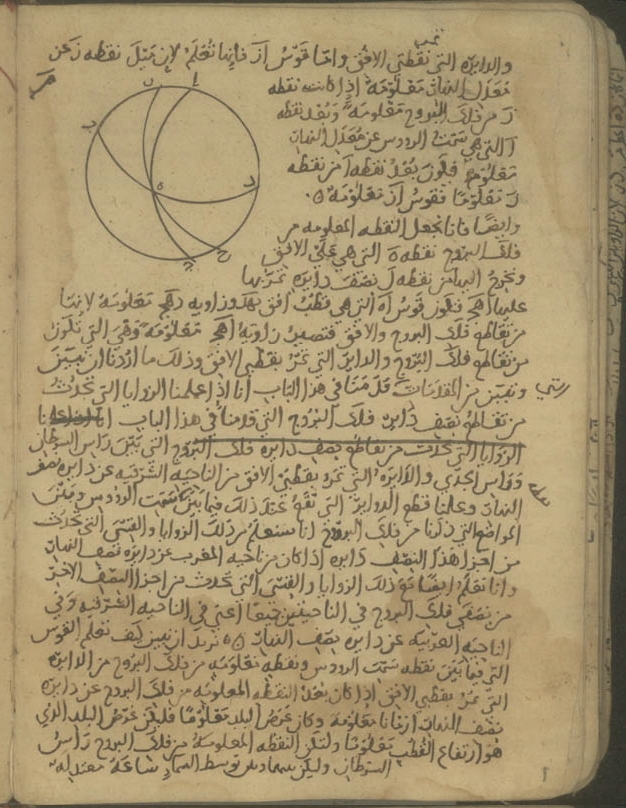 والدايره التي نقطتي الافق واما قوس از فانها تعلم لان ميل نقطه ز عن
معدل النهار معلومه اذا كانت نقطه
ز من فلك البروج معلومه وبعد نقطه
ا التي هي سمت الروس عن معدل النهار
معلوم فلون بعد نقطه ا من نقطه
ز معلوما فقوس از معلومه
وايضا فانا نجعل النقطه المعلومه من
فلك البروج نقطه ه التي هي على الافق
ونخرج نقطه نصف دايره تمر بها
قوس اه التي هي قطب افق وزاويه دهج معلومه لانها
من تقاطع فلك البروج والافق فتصير زاويه اهج معلومه وهي التي تكون
من تقاطع فلك البروج والدايره التي تمر بقطبي الافق وذلك ما اردنا ان نبين
ونبين من المقدمات قدمنا في هذا الباب انا اذا علمنا الزوايا التي تحدث
من تقاطع نصف دايره فلك البروج التي قدمنا في هذا الباب
الزوايا التي تحدث من تقاطع نصف دايره فلك البروج التي بين راس السرطان
وراس الجدي والدايره التي تمر بقطبي الافق من الناحيه الشرقيه عن دايره نصف
النهار وعلمنا قطع الدواير التي تقع عند ذلك فيما بين سمت الروس وبين
المواضع التي ذكرنا من فلك البروج انا سنعلم من ذلك الزوايا والقسي التي تحدث
من اجزا هذا النصف دايره اذا كان من ناحيه المغرب عن دايره نصف النهار
وانا نعلم ايضا مع ذلك الزوايا والقسي التي تحدث من اجزا النصف الاخر
من نصفي فلك البروج في الناحيتين جميعا اعني في الناحيه الشرقيه وفي
الناحيه الغربيه عن دايره نصف النهار نريد ان نبين كيف نعلم القوس
التي فيما بين نقطه سمت الروس ونقطه معلومه من فلك البروج من الدايره
التي تمر بقطبي الافق اذا كان بعد النقطه المعلومه من فلك البروج عن دايره
نصف النهار ازمانا معلومه وكان عرض البلد معلوما فليكن عرض البلد الذي
هو ارتفاع القطب معلوما ولتكن النقطه المعلومه من فلك البروج راس
السرطان وليكن توسط السما ساعه معتدله